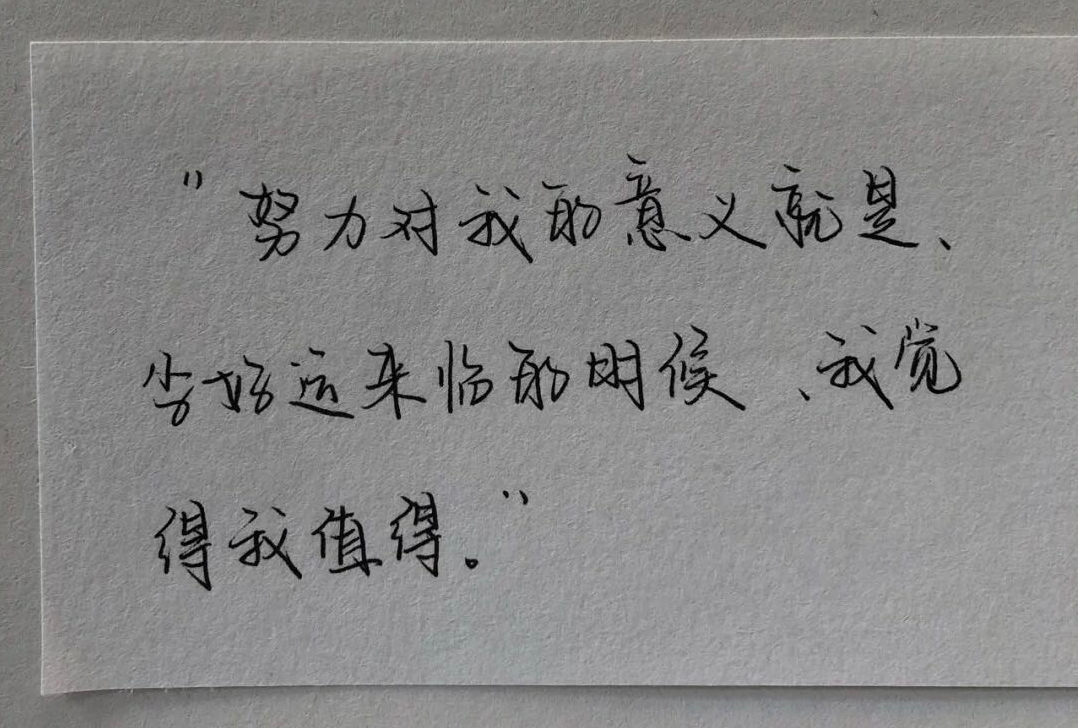 "努力对我的意义就是、
当好运来临的时候、我觉
得我值得。"